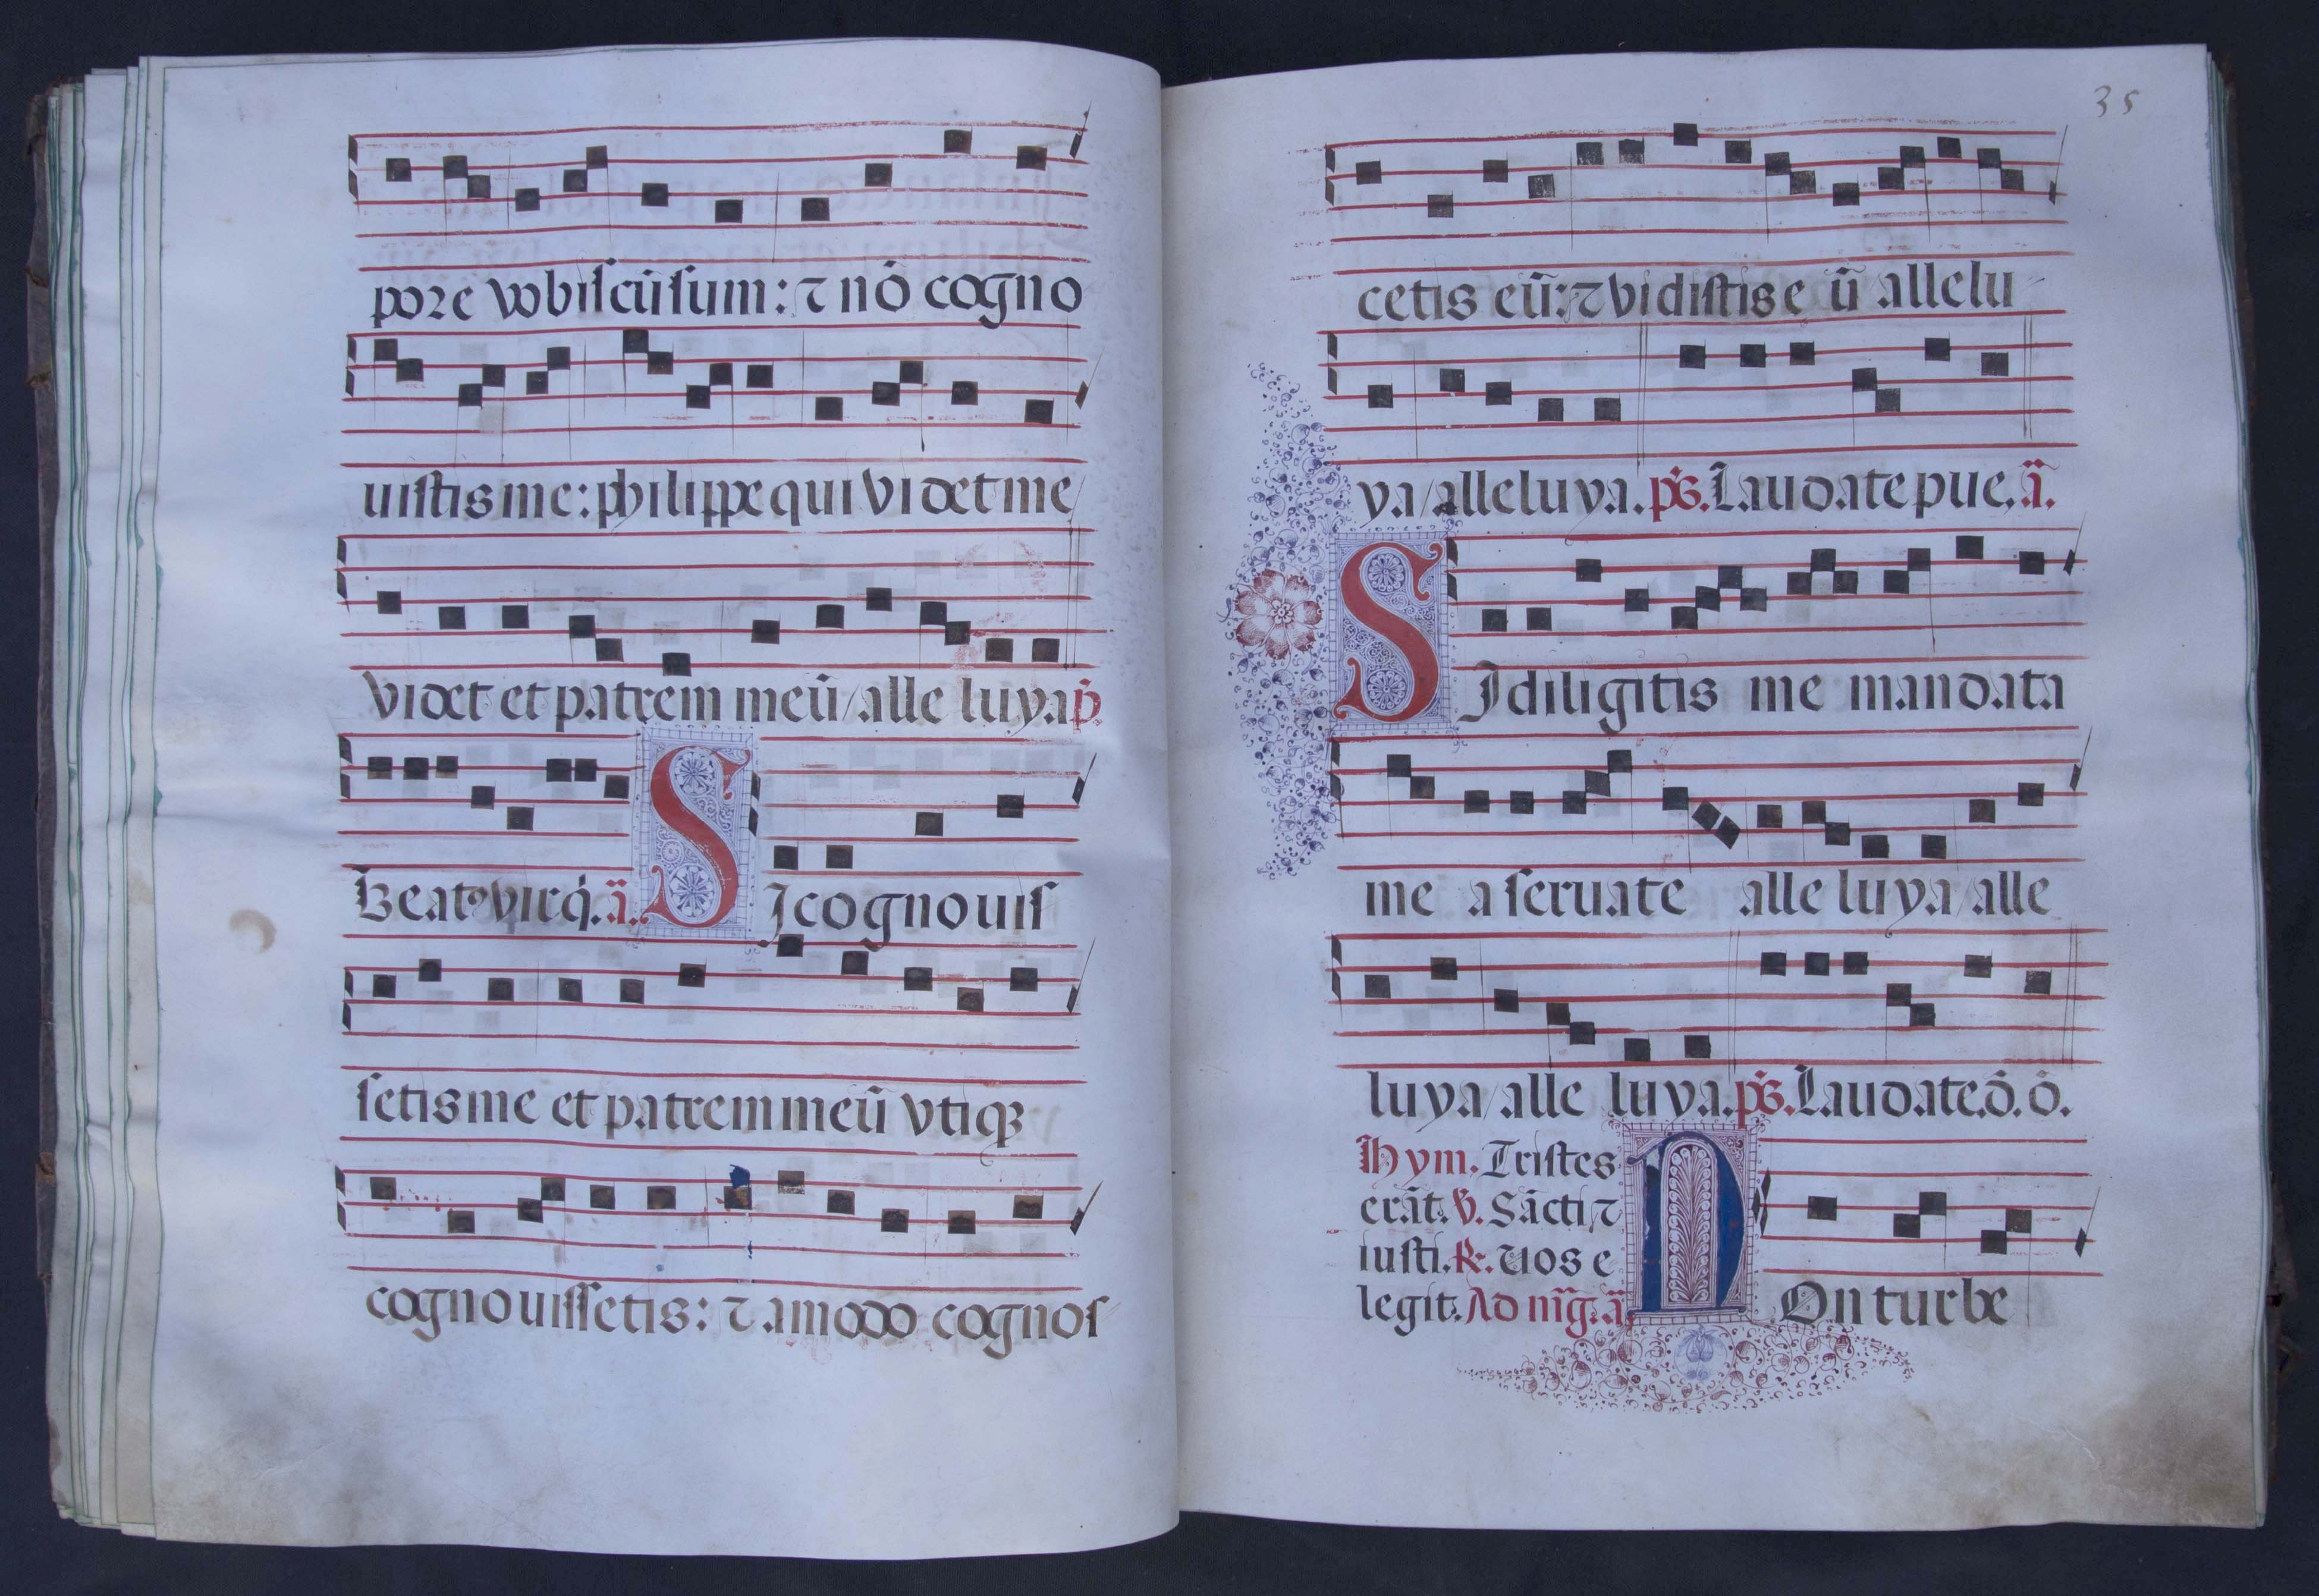 pore vobiſcū ſum: ⁊ nō cogno
uiſtis me: philippe qui videt me/
videt et patrem meū/ alle luya p̄.
Beatꝰ vir q̇. ā. SI cognouiſ
ſetis me et patrem meū vtiqꝫ
cognouiſſetis: ⁊ amodo cognoſ
35
cetis eū: ⁊ vidiſtis e ū allelu
ya/ alleluya. p̄s. Laudate pue. ā.
SI diligitis me mandata
me a ſeruate alle luya/ alle
luya/ alle luya. p̄s. Laudate. ō. ō.
Hym. Triſtes
erāt. ℣. Sācti ⁊
iuſti. ℟. vos e
legit. Ad mḡ. ā.
NOn turbe